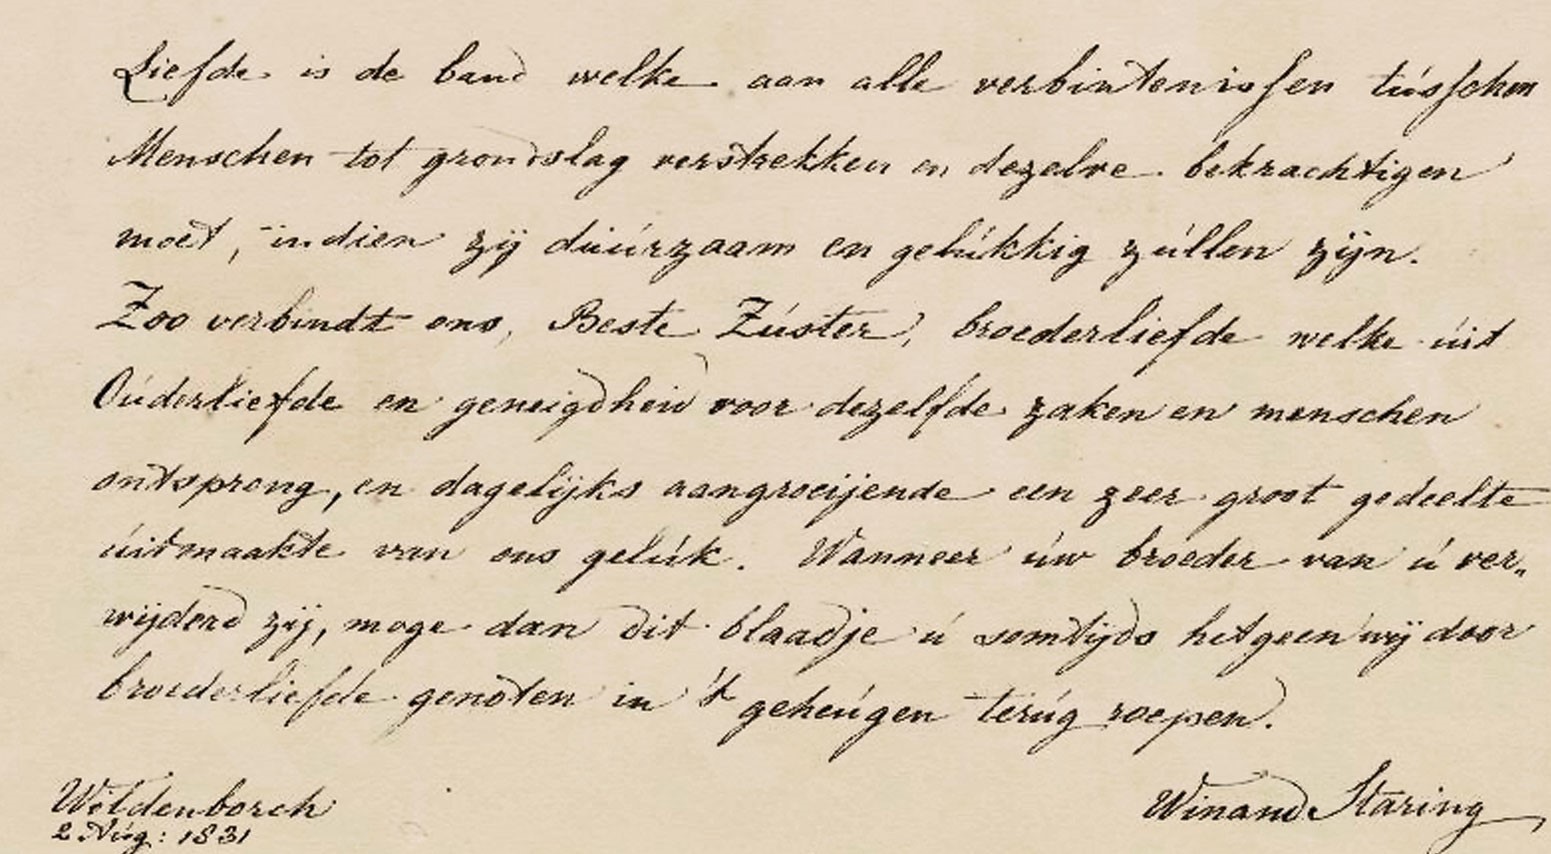 Liefde is de band welke aan alle verbintenissen tusschen
Menschen tot grondslag verstrekken en dezelve bekrachtigen
moet, indien zij duurzaam en gelukkig zullen zijn.
Zoo verbindt ons, Beste Zuster, broederliefde welke uit
Ouderliefde en geneigdheid voor dezelfde zaken en menschen
ontsprong, en dagelijks aangroeijende een zeer groot gedeelte
uitmaakte van ons geluk. Wanneer uw broeder van u ver„
wijderd zij, moge dan dit blaadje u somtijds hetgeen wij door
broederliefde genoten in 't geheugen terug roepen.
Wildenborch
2 Aug: 1831
Winand Staring